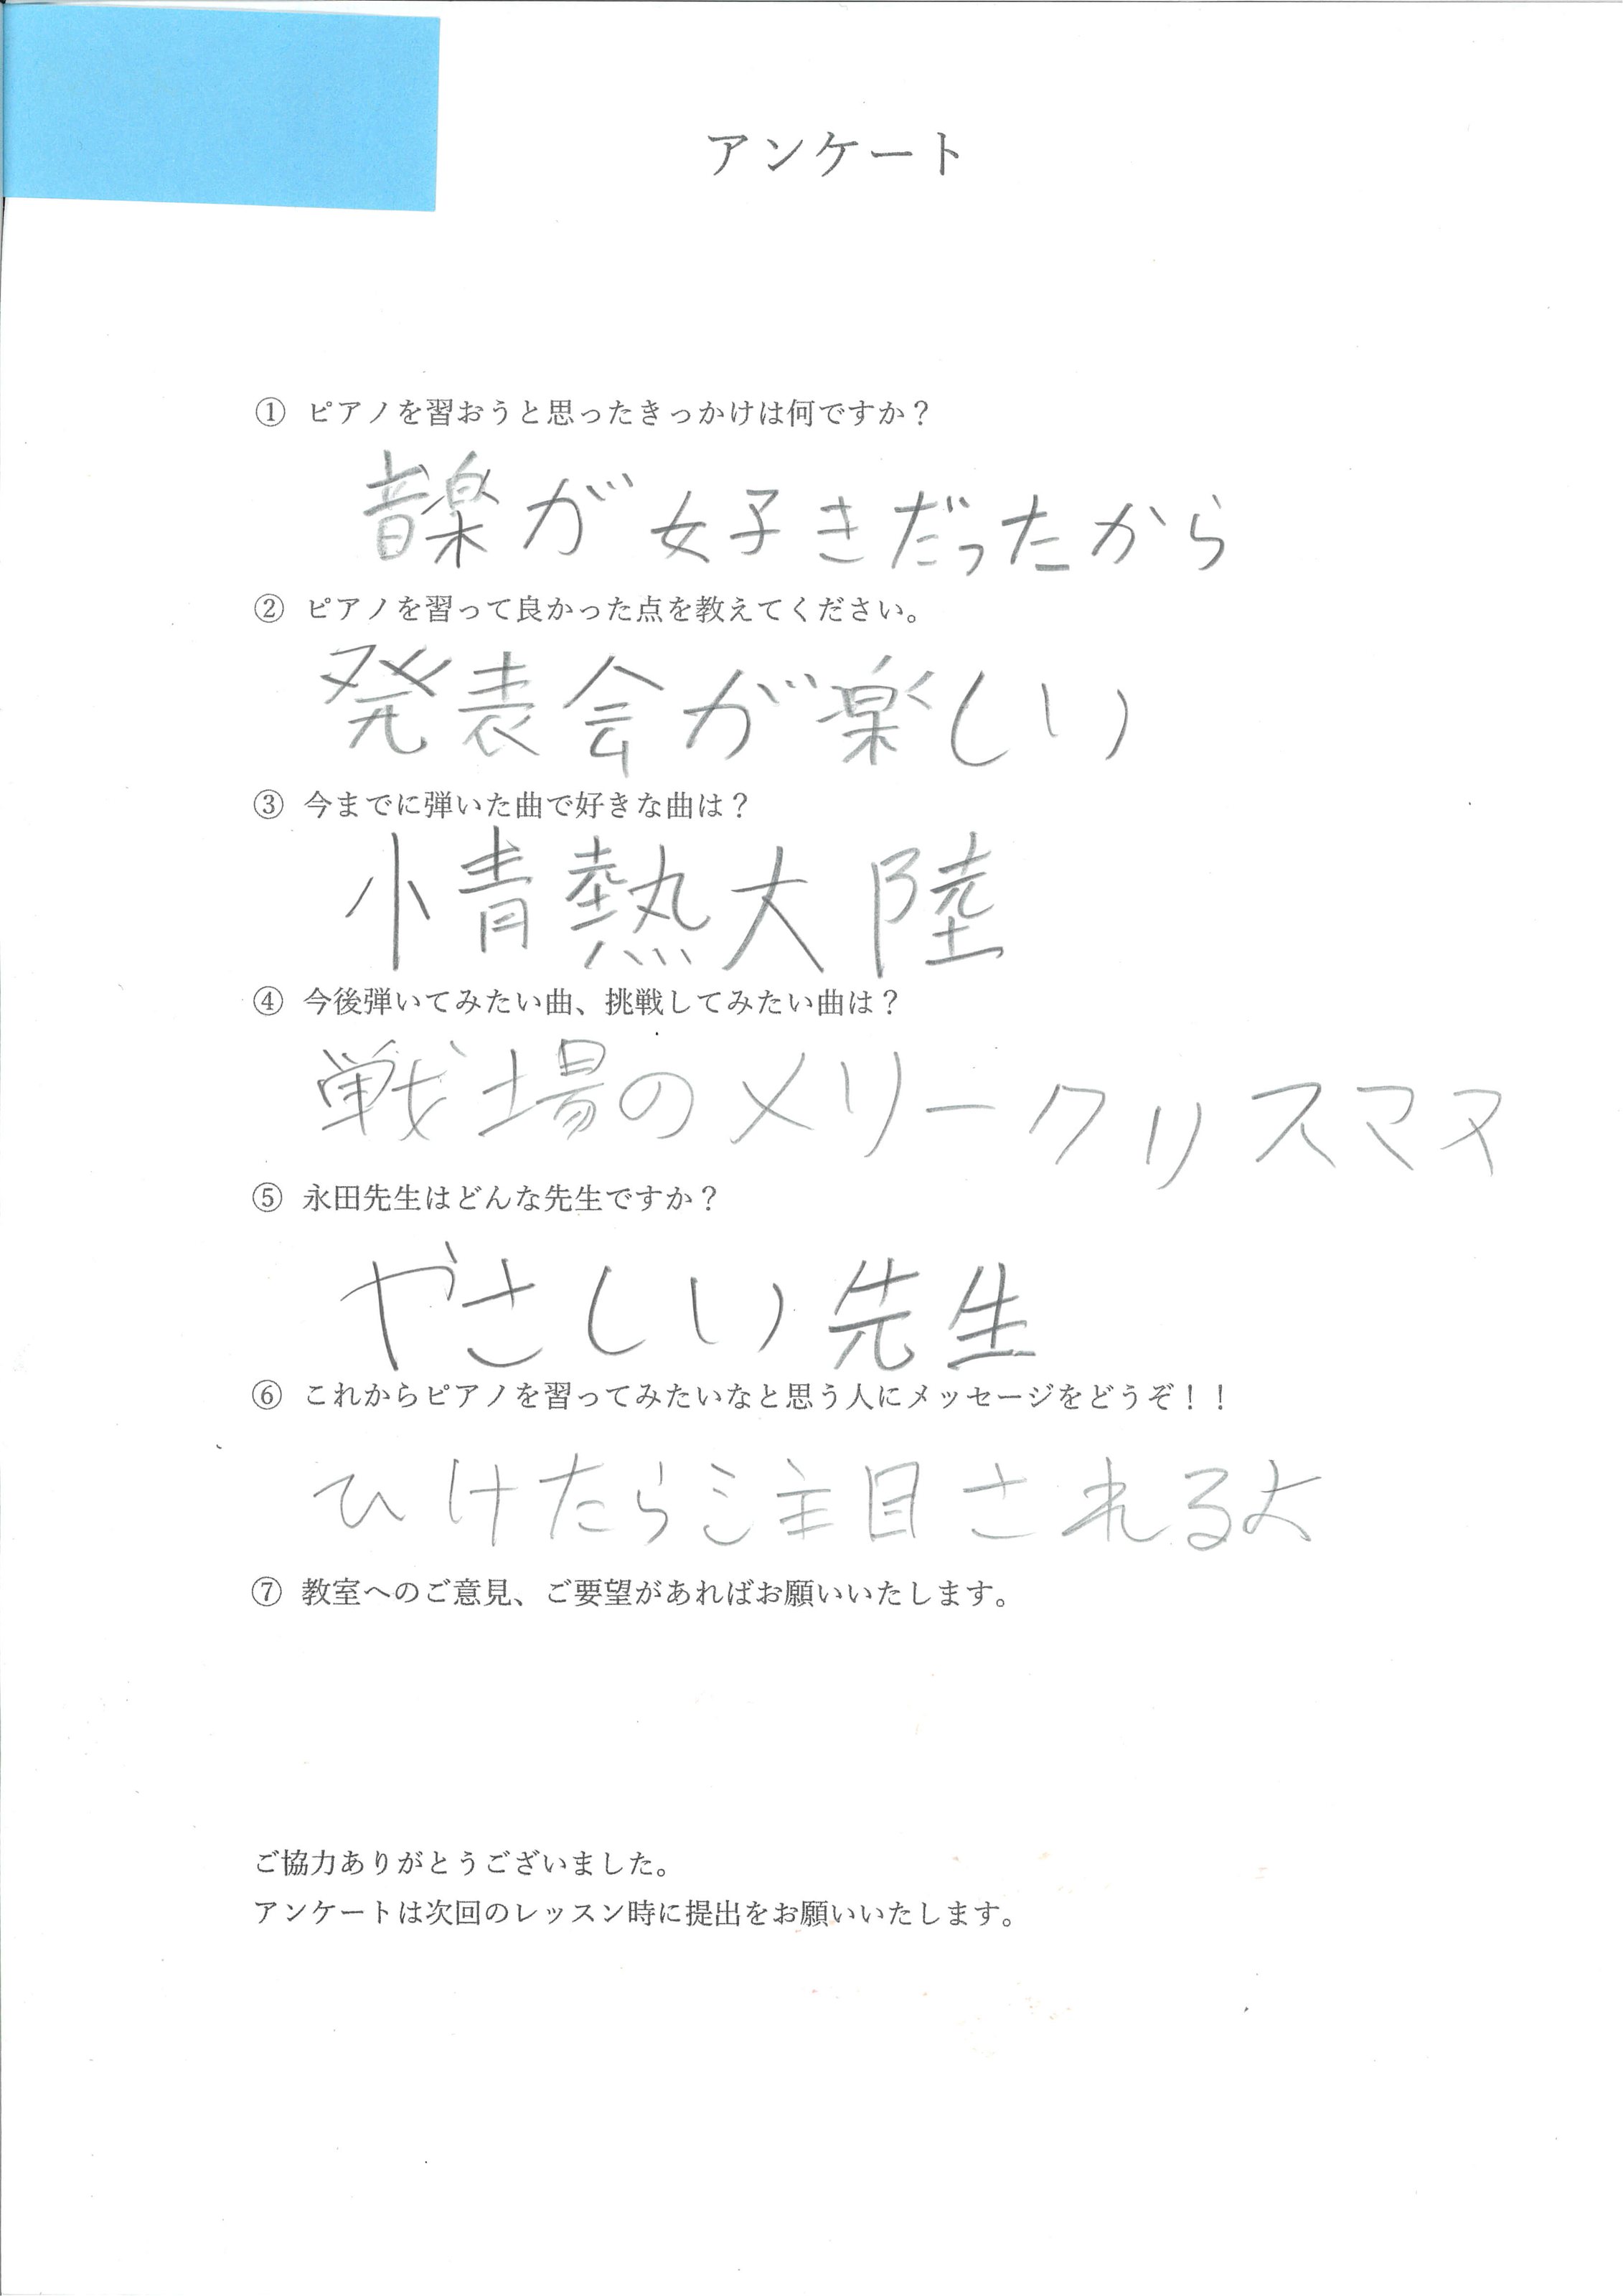 アンケート
① ピアノを習おうと思ったきっかけは何ですか？
音楽が好きだったから
② ピアノを習って良かった点を教えてください。
発表会が楽しい
③ 今までに弾いた曲で好きな曲は？
情熱大陸
④ 今後弾いてみたい曲、挑戦してみたい曲は？
戦場のメリークリスマス
⑤ 永田先生はどんな先生ですか？
やさしい先生
⑥ これからピアノを習ってみたいなと思う人にメッセージをどうぞ！！
ひけたら注目されるよ
⑦ 教室へのご意見、ご要望があればお願いいたします。
ご協力ありがとうございました。
アンケートは次回のレッスン時に提出をお願いいたします。